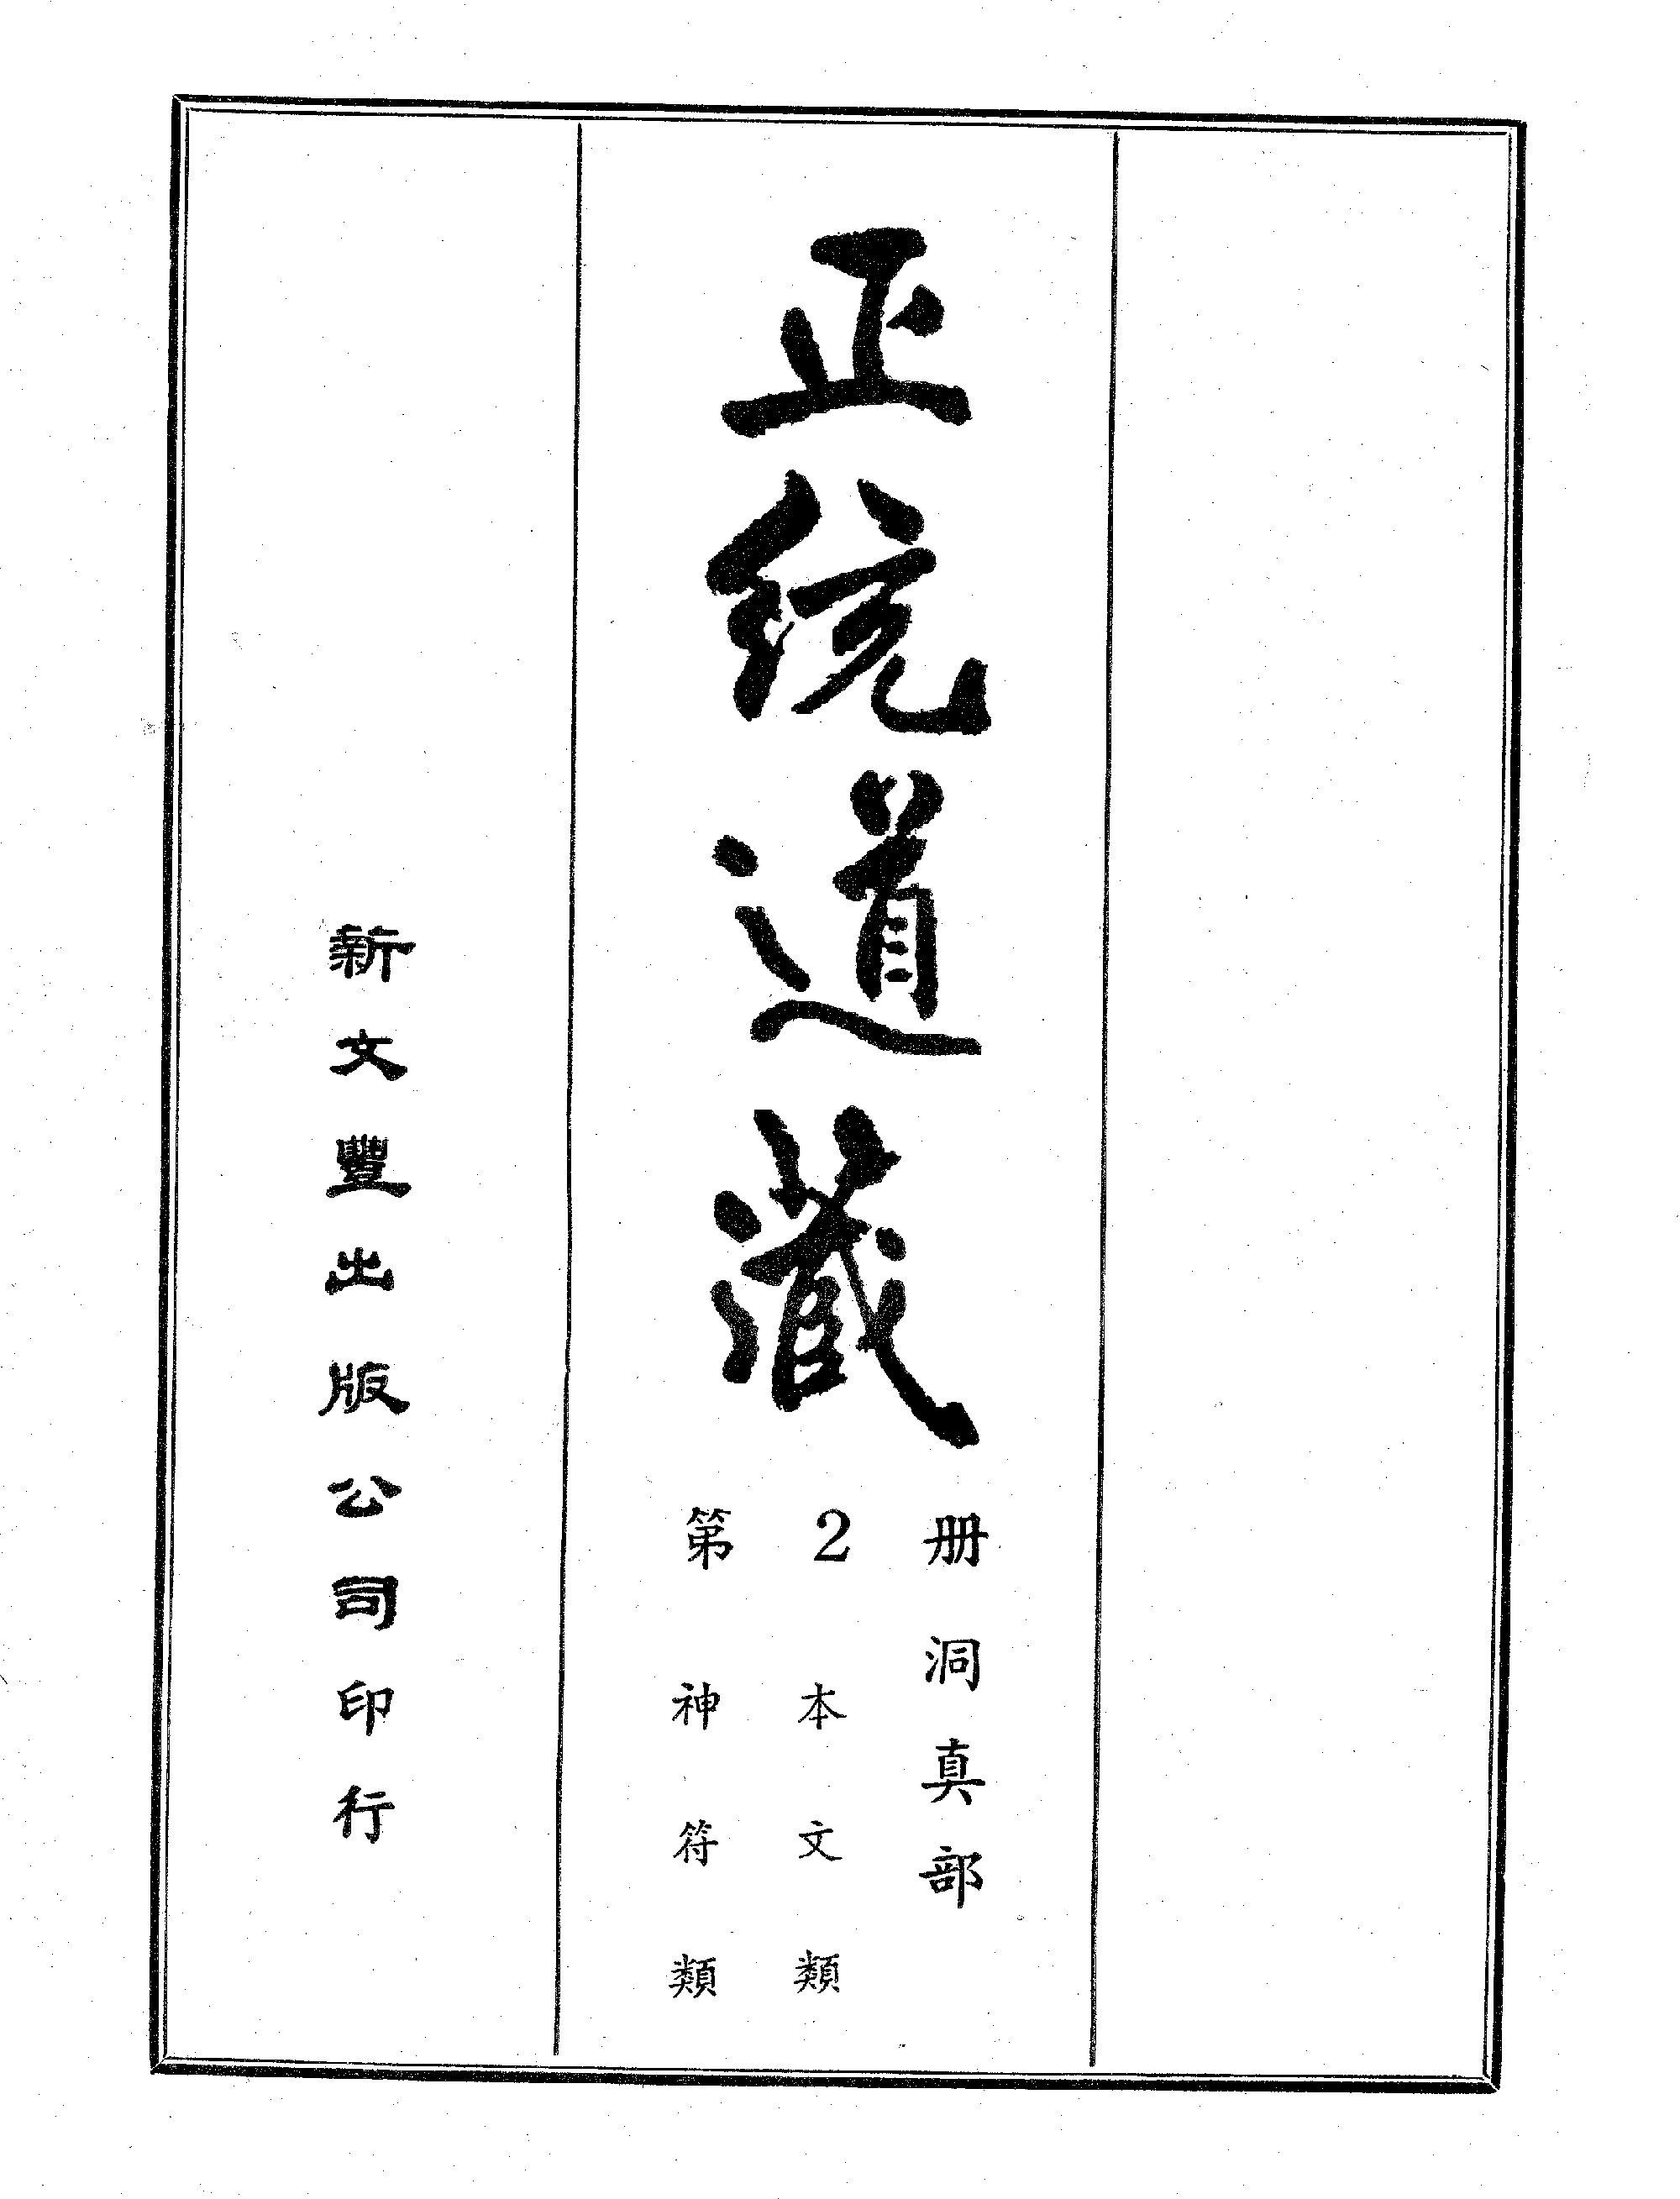 正統道藏
第2册
洞真部
本文類
神符類
新文豐出版公司印行